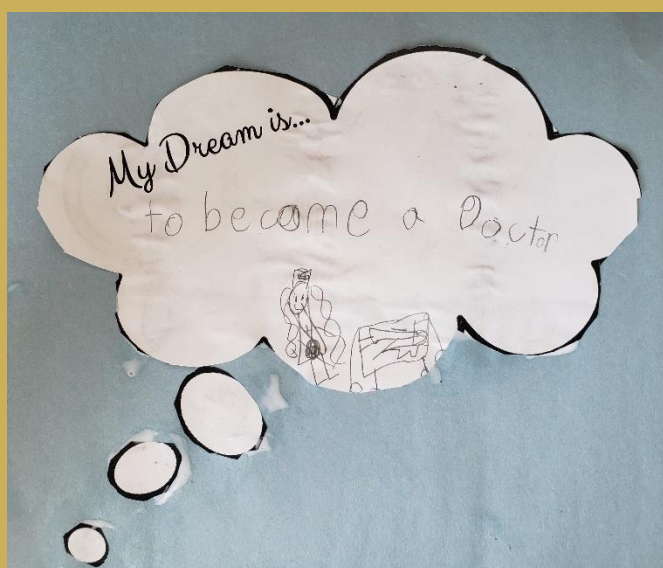 My Dream is...
to become a Doctor